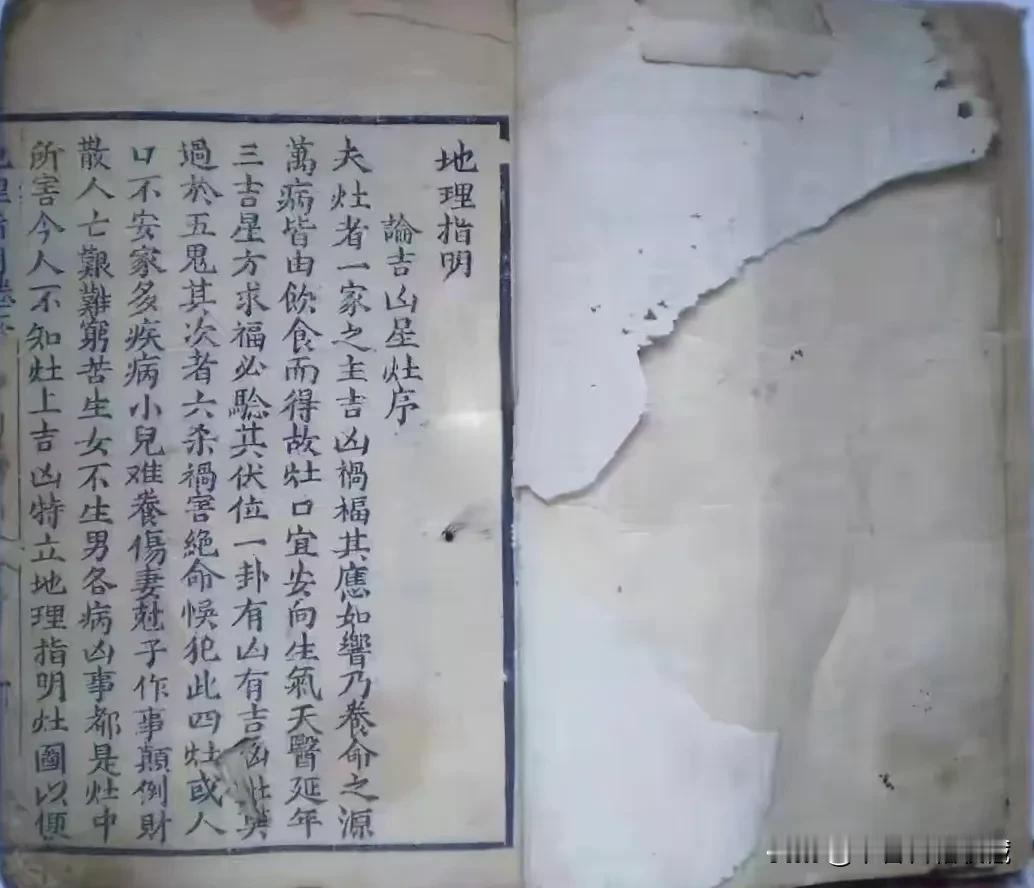 地理指明
論吉凶星灶序
夫灶者一家之主吉凶禍福其應如響乃養命之源
萬病皆由飲食而得故灶口宜安向生氣天醫延年
三吉星方求福必驗其伏位一卦有凶有吉凶灶莫
過於五鬼其次者六杀禍害絶命悞犯此四灶或人
口不安家多疾病小兒难養傷妻尅子作事顛倒財
散人亡艱難窮苦生女不生男各病凶事都是灶中
所害今人不知灶上吉凶特立地理指明灶圖以便